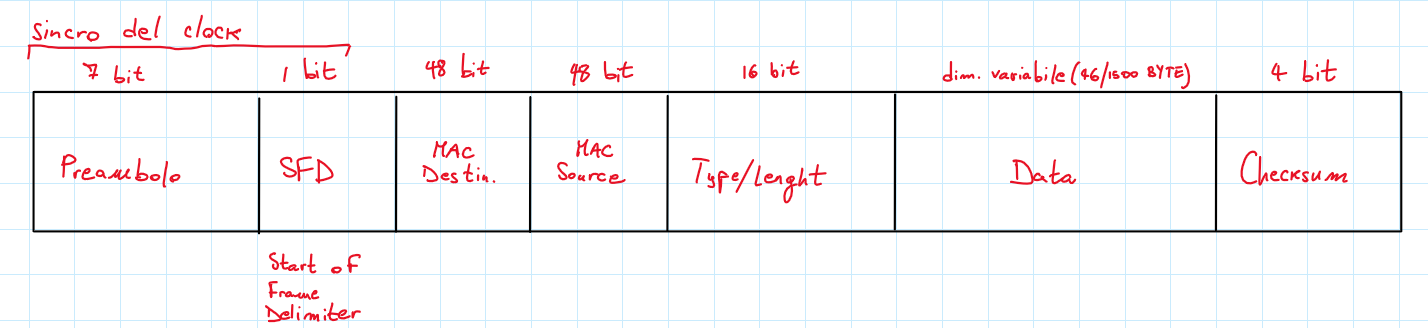 Sincro del clock
7 bit
1 bit
48 bit
48 bit
16 bit
dim. variabile (46/1500 BYTE)
4 bit
Preambolo
SFD
MAC
Destin.
MAC
Source
Type/Lenght
Data
Checksum
Start of
Frame
Delimiter